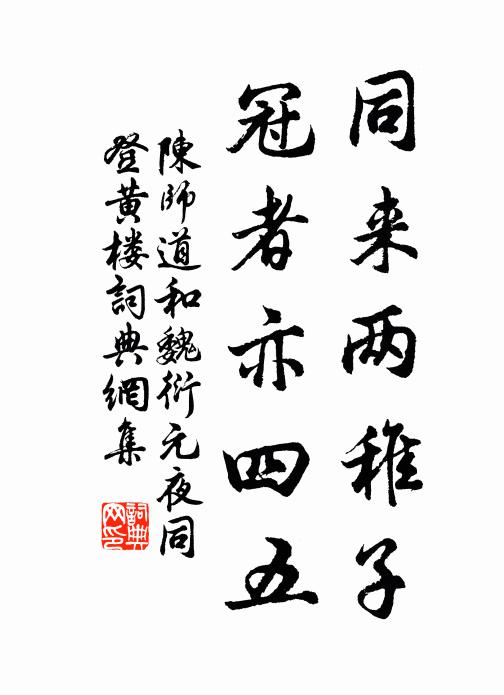 同来两稚子
冠者亦四五
陳師道和魏衍元夜同
登黄楼詞典網集
詞典网印